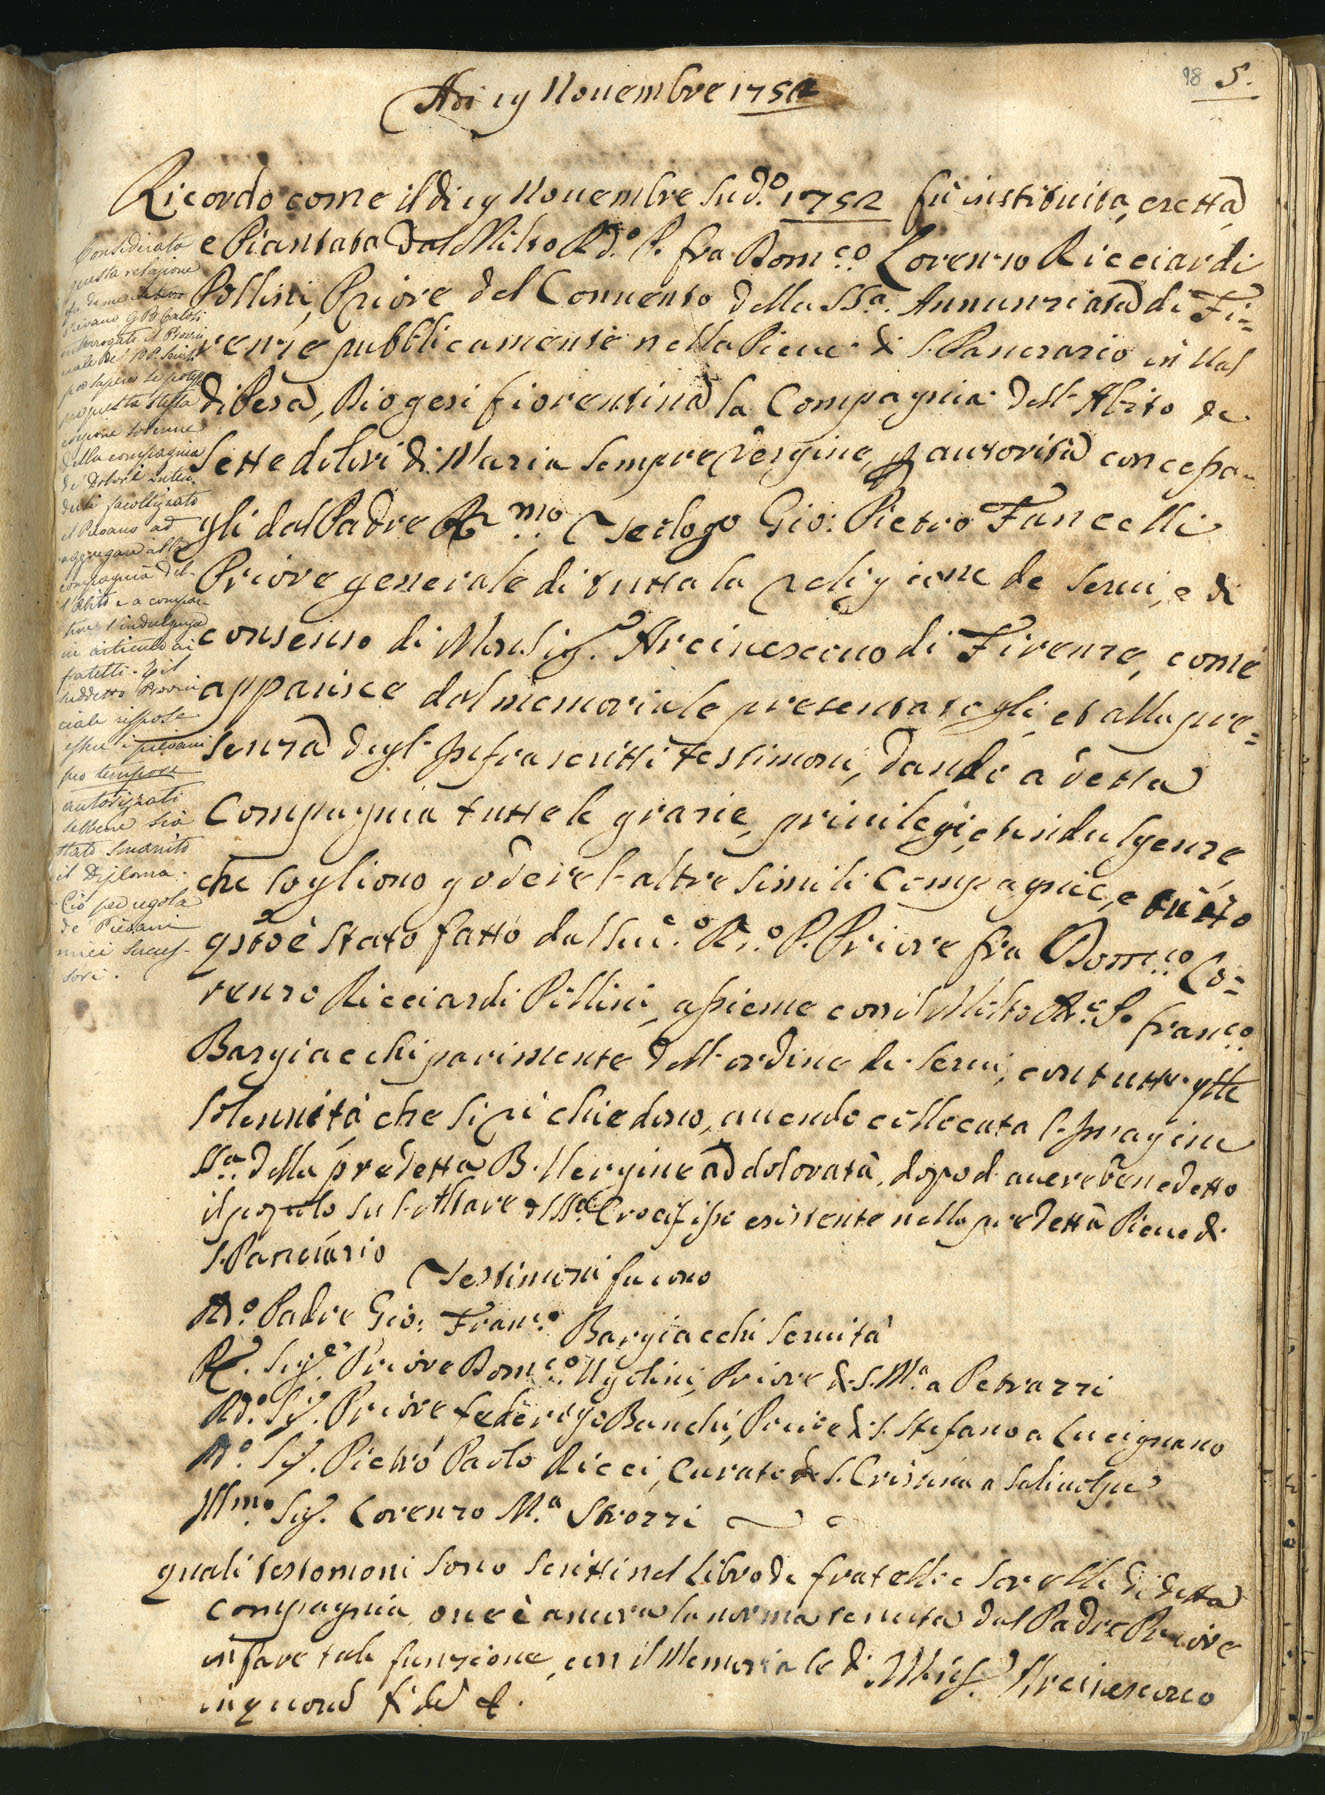 98 5.
Adi 19 Nouembre 1752
Ricordo come il di 19 Nouembre Sud.o 1752 fù instituita, eretta
e Piantata dal Molto Rd.o P. fra Dom.co Lorenzo Ricciardi
Pollini, Priore del Conuento della SSa. Annunziata di Fi=
renze pubblicamente nella Pieue di S. Pancrazio in Val
di Pesa, Diogesi fiorentina la Compagnia dell'Abito de
Sette dolori di Maria Sempre Vergine, p autorità concessa=
gli dal Padre R.mo Teologo Gio: Pietro Fancelli
Priore generale di tutta la religione de Serui, e di
consenso di Monsig.r Arciuescouo di Firenze, come
apparisce dal memoriale presentatogli, et alla pre=
senza degl'Infrascritti testimoni, dando a detta
Compagnia tutte le grazie, priuilegi, et indulgenze
che sogliono godere l'altre simili Compagnie, e tutto
qsto è stato fatto dal Sud.o Rd.o P. Priore fra Dom.co Lo=
renzo Ricciardi Pollini, assieme con il Molto Rd.o P. Fran.co
Bargiacchi parimente dell'ordine de Serui, con tutte qlle
solennità che si richiedono, auendo collocata l'Imagine
SS.a della predetta B. Vergine addolorata, dopo d'auere benedetto
il popolo su l'Altare del SS.o Crocifisso esistente nella predetta Pieue di
S. Pancrazio
Testimoni furono
Rd.o Padre Gio: Fran.co Bargiacchi Seruita
R. Sig.e Priore Dom.co Ugolini, Priore di S. M.a a Petrazzi
Rd.o Sig. Priore Federigo Banchi, Priore di S. Stefano a Lucignano
Rd.o Sig. Pietro Paolo Ricci, Curato di S. Cristina a Saliuolpe
Illmo. Sig. Lorenzo M.a Strozzi
quali testomoni sono scritti nel Libro de fratelli e sorelle di detta
compagnia, oue è ancora la norma tenuta dal Padre Priore
in fare tale funzione, con il Memoriale di Monsig.r Arciuescouo
in quorum fidem &.
Considerata
questa relazione
Pievano G B
interrogato il Provin
ciale de' PP. Serviti
per sapere se potesse
questa stessa
della compagnia
de' Dolori
facoltizzato
il Pievano ad
aggregare alla
compagnia del=
l'Abito e a compar
tire l'indulgenza
in articulo ai
fratelli. Il
suddetto Provin
ciale rispose
esser i pievani
pro tempore
autorizzati
sebbene sia
stato smarrito
il Diploma.
Ciò per regola
de' Pievani
miei succes=
sori.